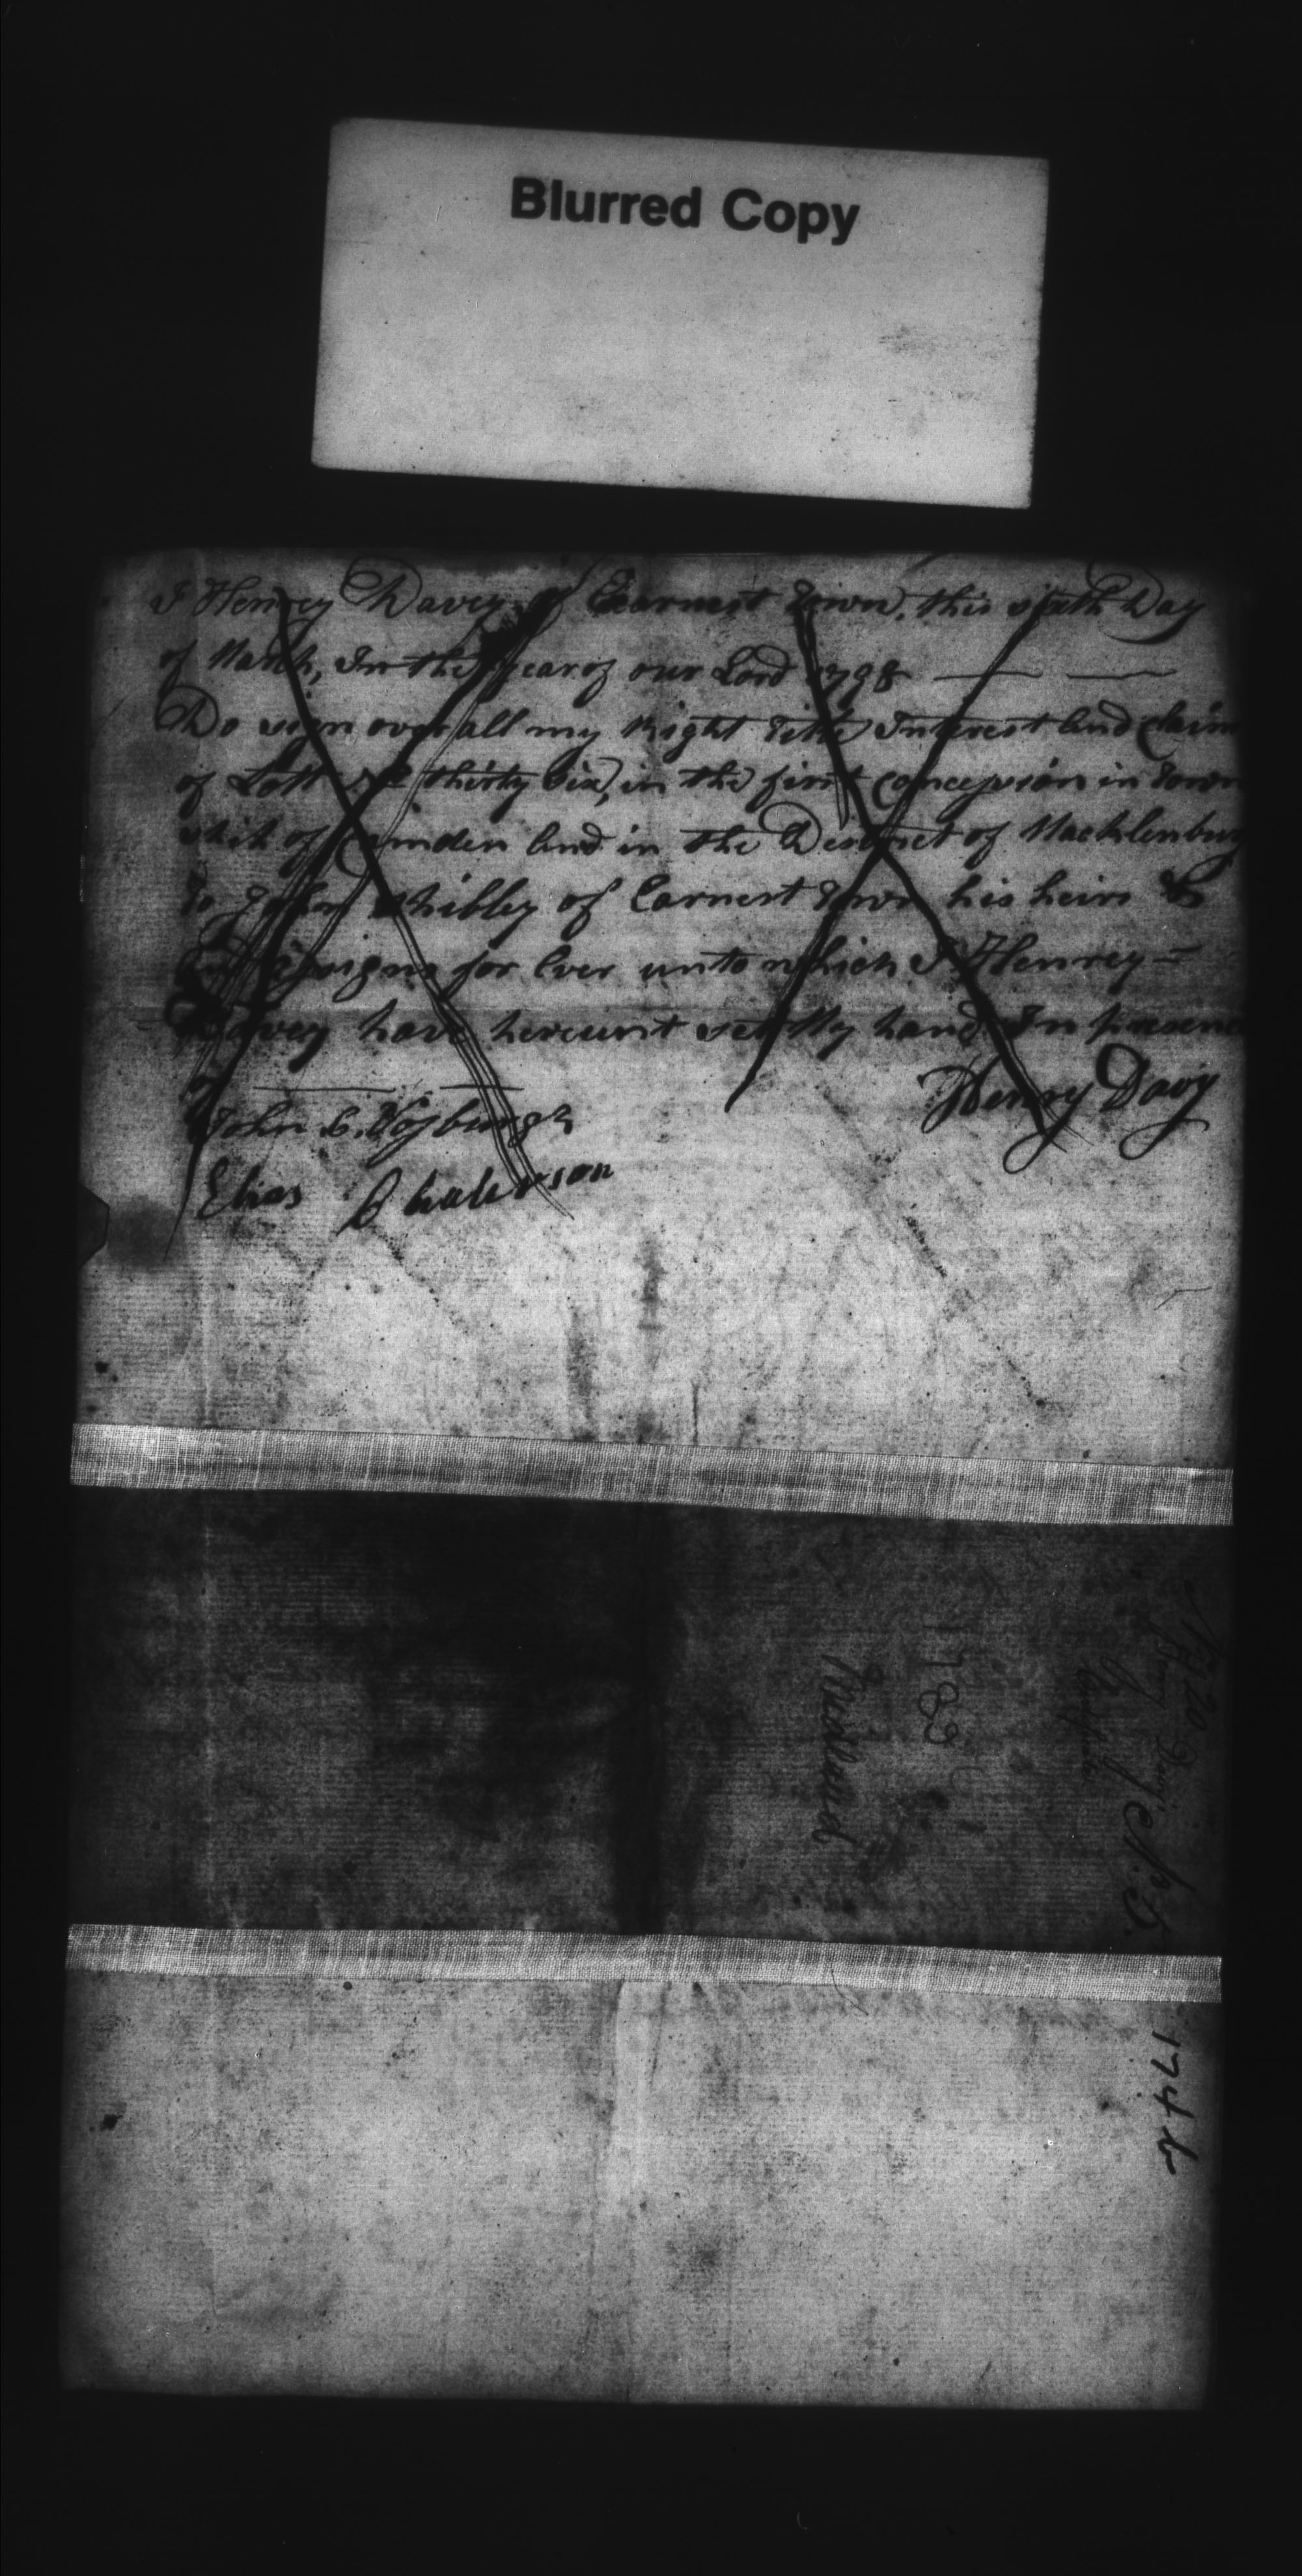 Blurred Copy
I Henrey Davey of Earnest Town, this sixth Day
of March, In the year of our Lord 1798
Do sign over all my Right Title Interest and Claim
of Lott No thirty Six, in the first Conception in Town
ship of Camden and in the District of Macklenburg
To John Shibley of Earnest Town his heirs &
and assigns for Ever unto which I Henrey =
Davey have hereunt set My hand In presence
of
Henry Davy
John C. Vosburgh
Elias
No 20
Henry Davy
Certificate
1783
Midland
174